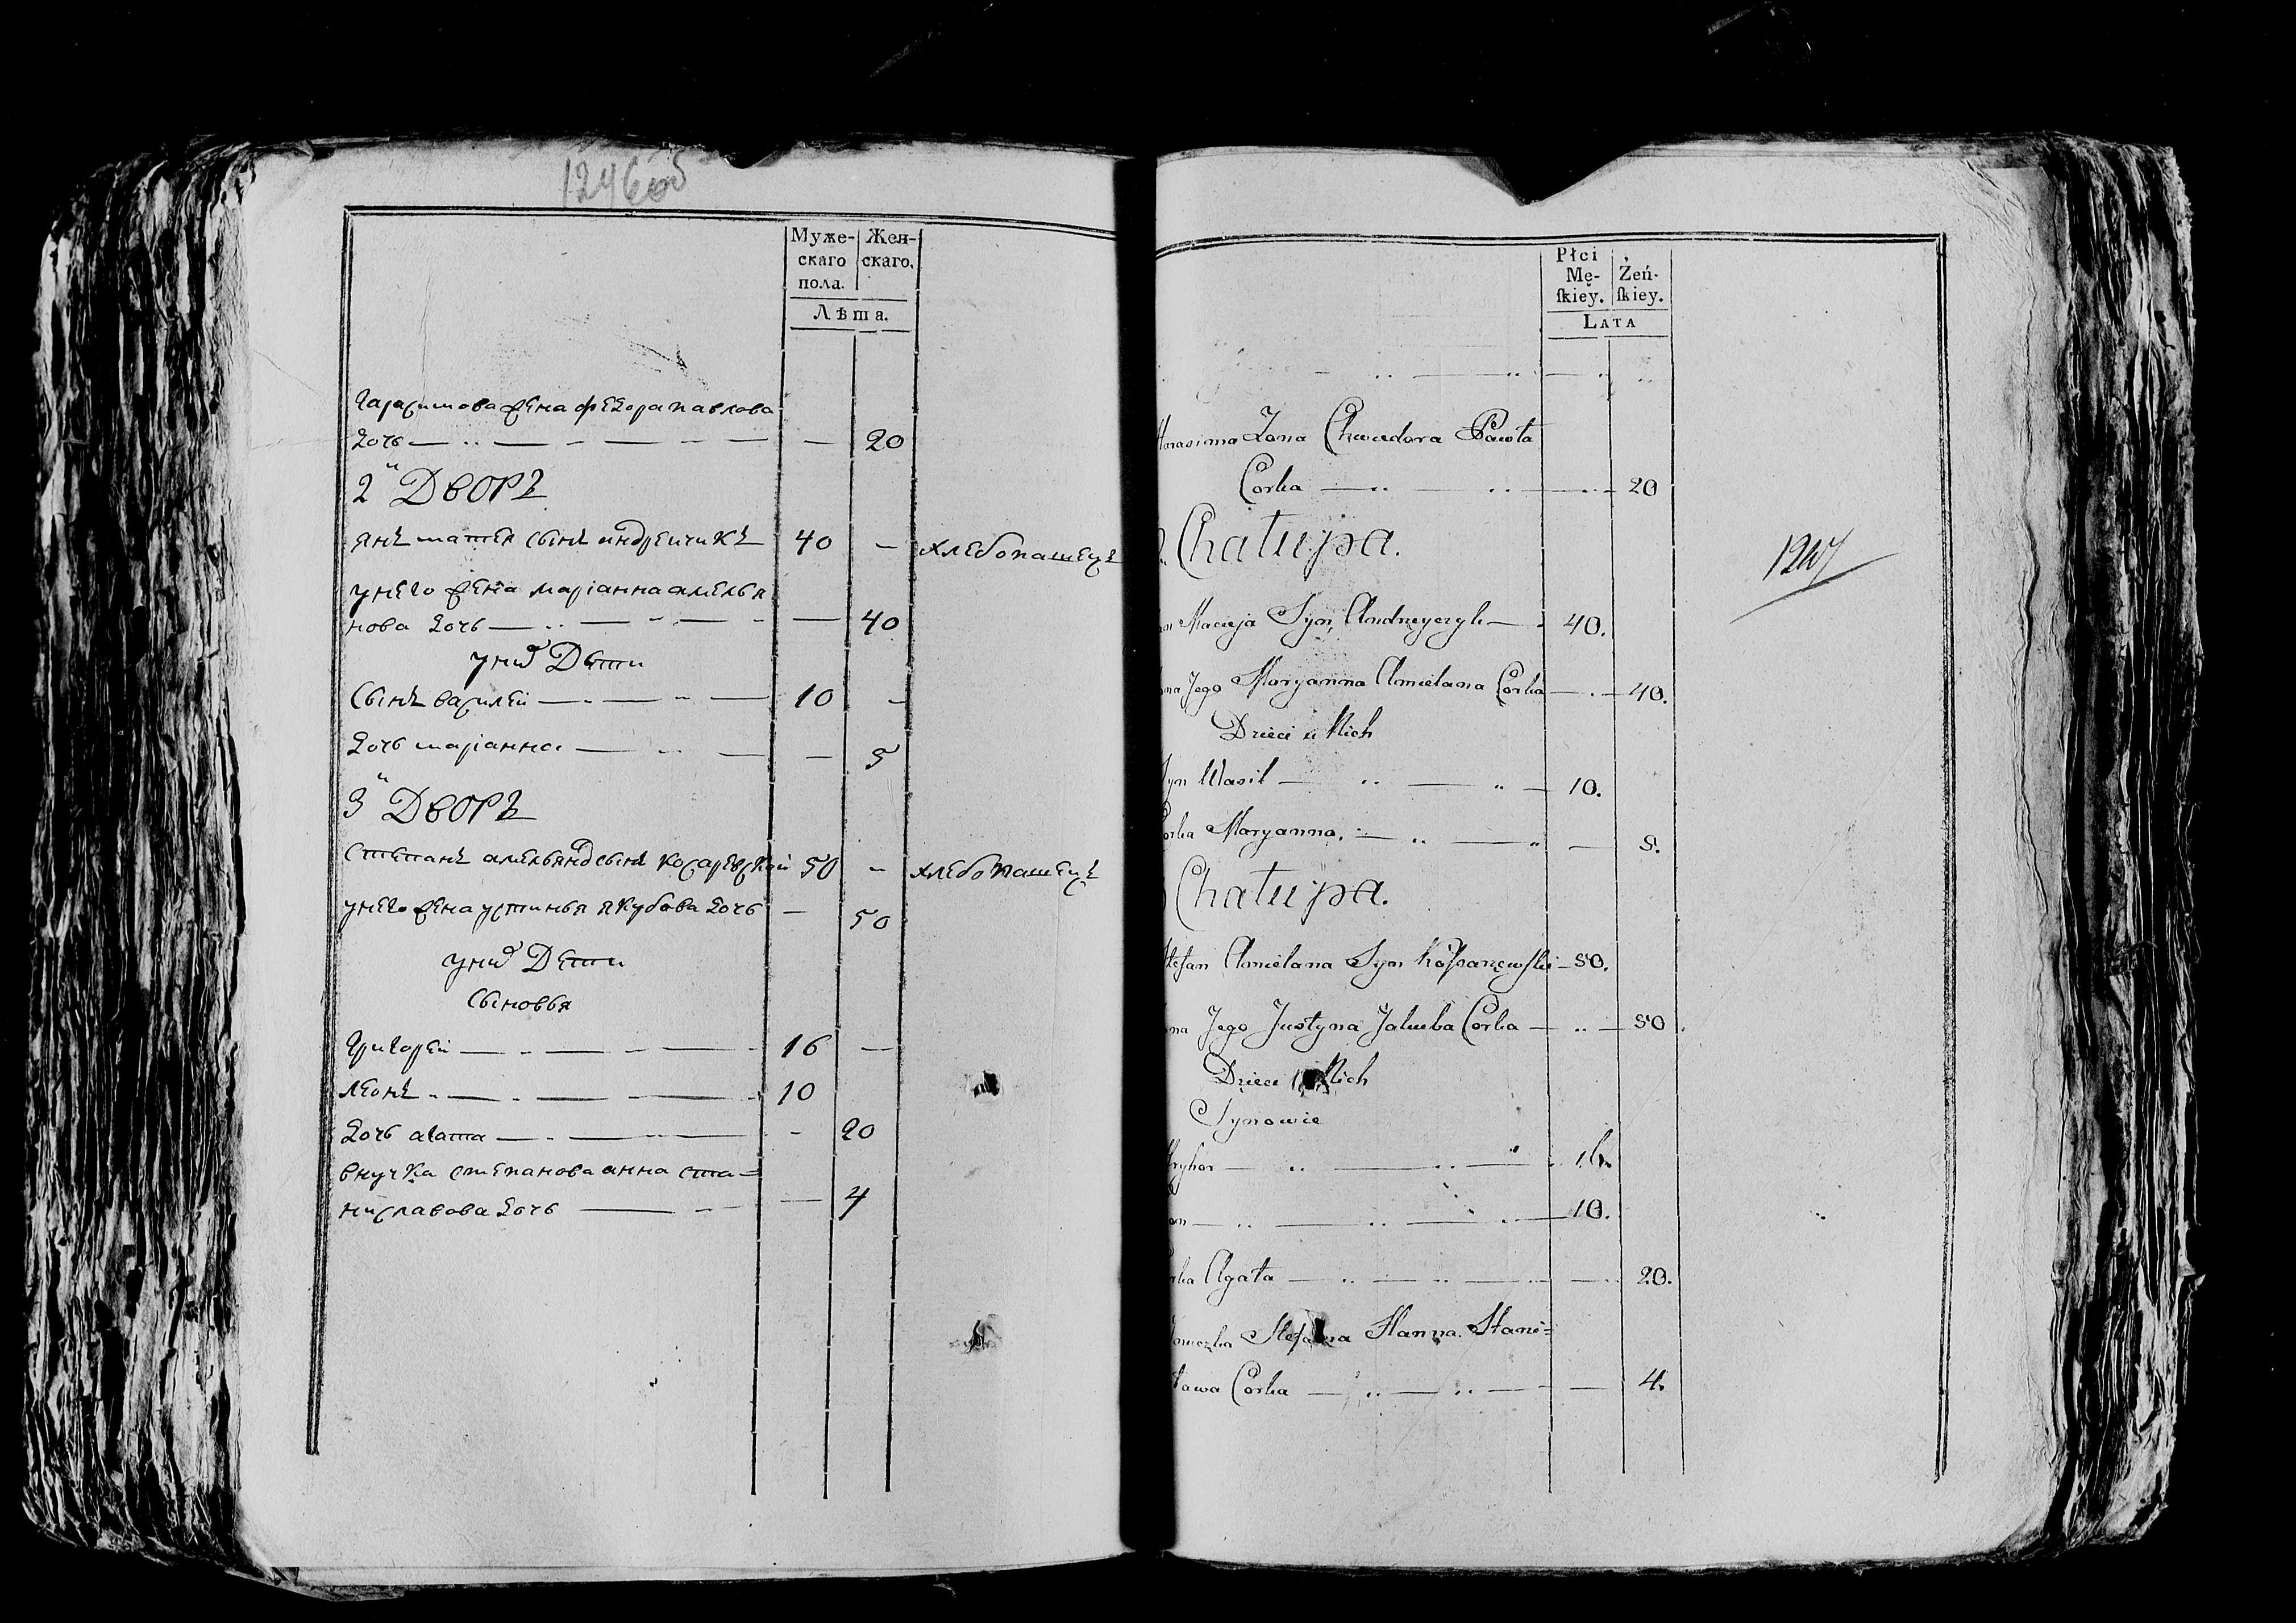 1246 об
Муже-
скаго
пола.
Жен-
скаго.
Лѣта.
Гарасимова жена федора павлова
дочь — 20
2й Дворъ
янъ матея сынъ индрейчикъ 40 — хлебопашецъ
унего жена маріанна амелья
нова дочь — 40
уних Дети
Сынъ василей — 10 —
дочь маріанна — 5
3й Дворъ
степанъ амельянов сынъ косаревской 50 — хлебопашецъ
унего жена устинья якубова дочь — 50
уних Дети
Сыновья
Григорей — 16 —
леонъ — 10
дочь агата — 20
внучка степанова анна ста=
ниславова дочь — 4
Płci
Mę-
ſkiey.
Żeń-
ſkiey.
Lata
Harasima Zona Chwiedora Pawła
Corka — 20
Chałupa.
1247
Macieja Syn Andreyczyk — 40.
Jego Maryanna Amielana Corka — 40.
Dzieci u Nich
Syn Wasil — 10.
Corka Maryanna. — 5.
Chałupa.
Stefan Amielana Syn Koſsarzewſki — 50.
Jego Justyna Jakuba Corka — 50.
Dzieci u Nich
Synowie
Hryhor — 16.
10.
Corka Agata — 20.
Stefana Hanna Stani=
sława Corka — 4.